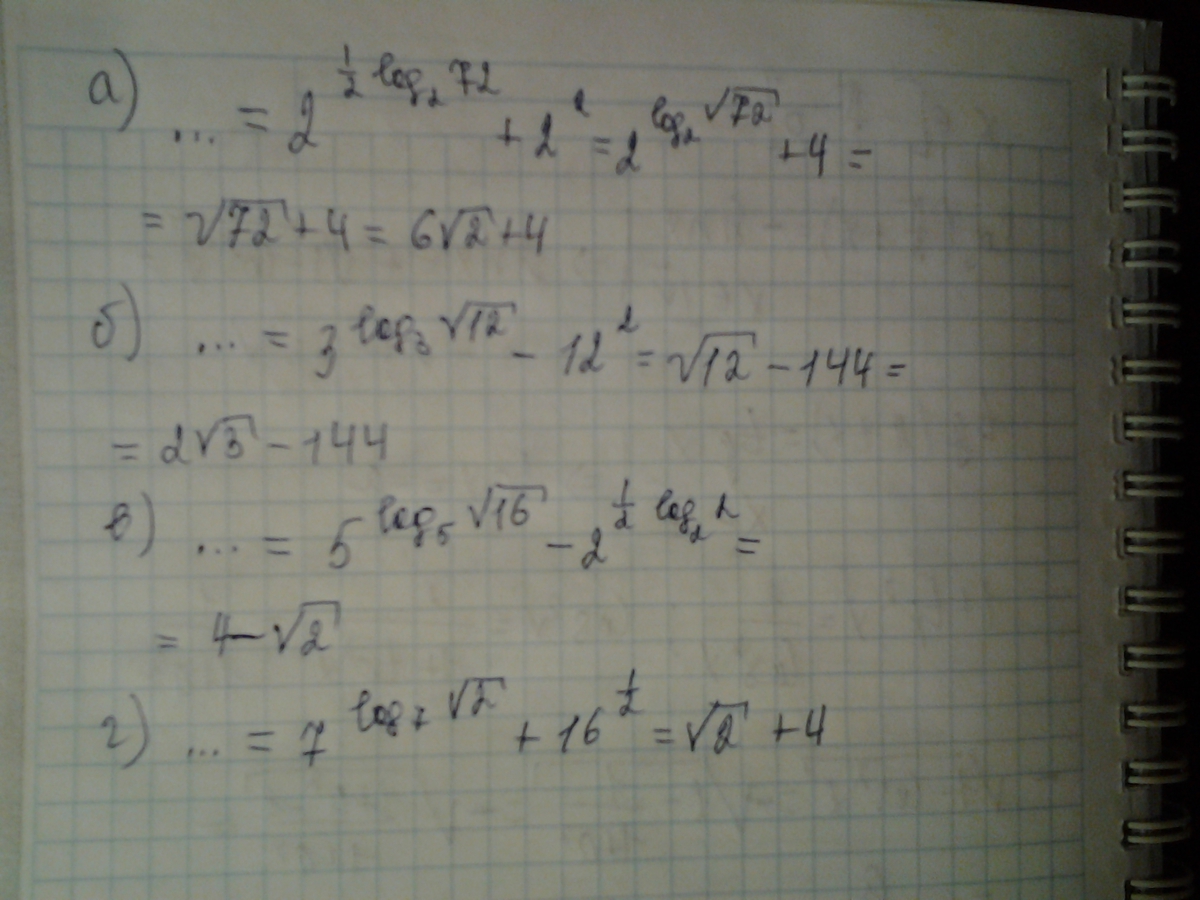 а) ... = 2^{\frac{1}{2} log_2 72} + 2^2 = 2^{log_2 √72} + 4 =
= √72 + 4 = 6√2 + 4
б) ... = 3^{log_3 √12} - 12^2 = √12 - 144 =
= 2√3 - 144
в) ... = 5^{log_5 √16} - 2^{\frac{1}{2} log_2 2} =
= 4 - √2
г) ... = 7^{log_7 √2} + 16^{\frac{1}{2}} = √2 + 4